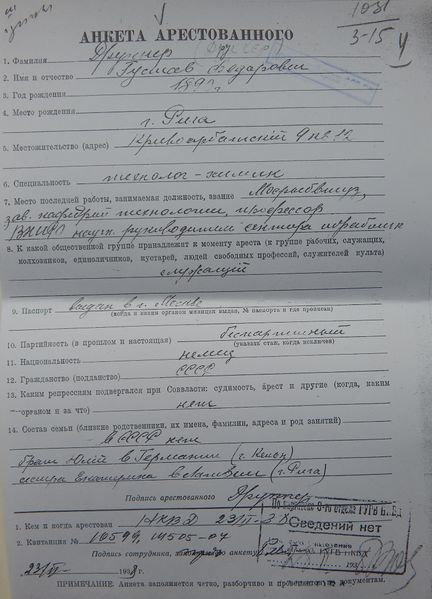 1031
3-15
АНКЕТА АРЕСТОВАННОГО
1. Фамилия Друккер
2. Имя и отчество Густав
3. Год рождения
4. Место рождения г. Рига
5. Местожительство (адрес) Кривоарбатский 9
6. Специальность технолог-химик
7. Место последней работы, занимаемая должность, звание Мосрыбвтуз,
зав. кафедрой технологии, профессор
научн. руководитель сектора обработки
8. К какой общественной группе принадлежит к моменту ареста (к группе рабочих, служащих,
колхозников, единоличников, кустарей, людей свободных профессий, служителей культа)
служащий
9. Паспорт выдан в г. Москве
(когда и каким органом милиции выдан, № паспорта и где прописан)
10. Партийность (в прошлом и настоящая) беспартийный
(указать стаж, когда исключен)
11. Национальность немец
12. Гражданство (подданство) СССР
13. Каким репрессиям подвергался при Соввласти: судимость, арест и другие (когда, каким
органом и за что) нет
14. Состав семьи (ближние родственники, их имена, фамилии, адреса и род занятий)
в СССР нет
брат Юлий в Германии (г. )
сестра Екатерина в Латвии (г. Рига)
Подпись арестованного Друккер
1. Кем и когда арестован НКВД 23/
2. Квитанция № 14505-07
Сведений нет
Подпись сотрудника, анкету
ПРИМЕЧАНИЕ. Анкета заполняется четко, разборчиво и документам.